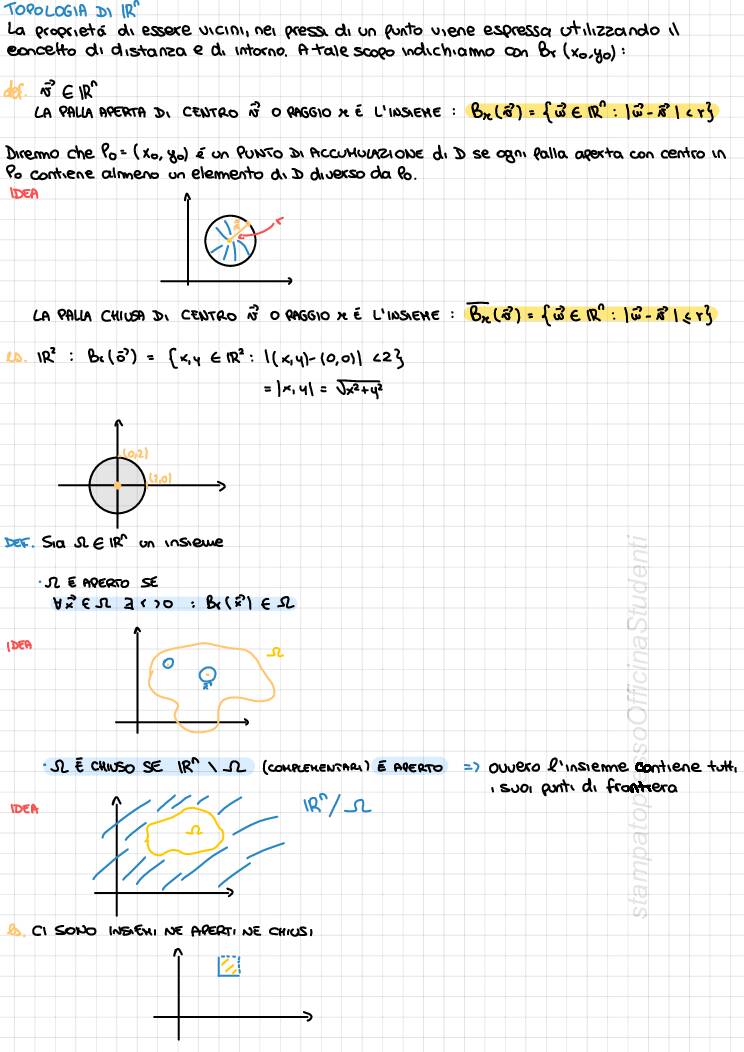 TOPOLOGIA DI ℝⁿ
La proprietà di essere vicini, nei pressi di un punto viene espressa utilizzando il
concetto di distanza e di intorno. A tale scopo indichiamo con Br (x₀,y₀) :
def. v⃗ ∈ ℝⁿ
LA PALLA APERTA DI CENTRO v⃗ O RAGGIO r É L'INSIEME : Br(v⃗) = {w⃗ ∈ ℝⁿ : |w⃗ - v⃗| < r}
Diremo che P₀ = (x₀, y₀) é un PUNTO DI ACCUMULAZIONE di D se ogni palla aperta con centro in
P₀ contiene almeno un elemento di D diverso da P₀.
IDEA
r
LA PALLA CHIUSA DI CENTRO v⃗ O RAGGIO r É L'INSIEME : B̅r(v⃗) = {w⃗ ∈ ℝⁿ : |w⃗ - v⃗| ≤ r}
es. ℝ² : Br(o⃗) = {x,y ∈ ℝ² : |(x,y)-(0,0)| <2}
= |x,y| = √x²+y²
(0,2)
(2,0)
DEF. Sia Ω ∈ ℝⁿ un insieme
· Ω É APERTO SE
∀x⃗ ∈ Ω ∃ r >0 : Br(x⃗) ∈ Ω
IDEA
Ω
x⃗
· Ω É CHIUSO SE ℝⁿ \ Ω (COMPLEMENTARI) É APERTO => ovvero l'insieme contiene tutti
i suoi punti di frontiera
IDEA
Ω
ℝⁿ / Ω
es. CI SONO INSIEMI NE APERTI NE CHIUSI
stampatopressoOfficinaStudenti